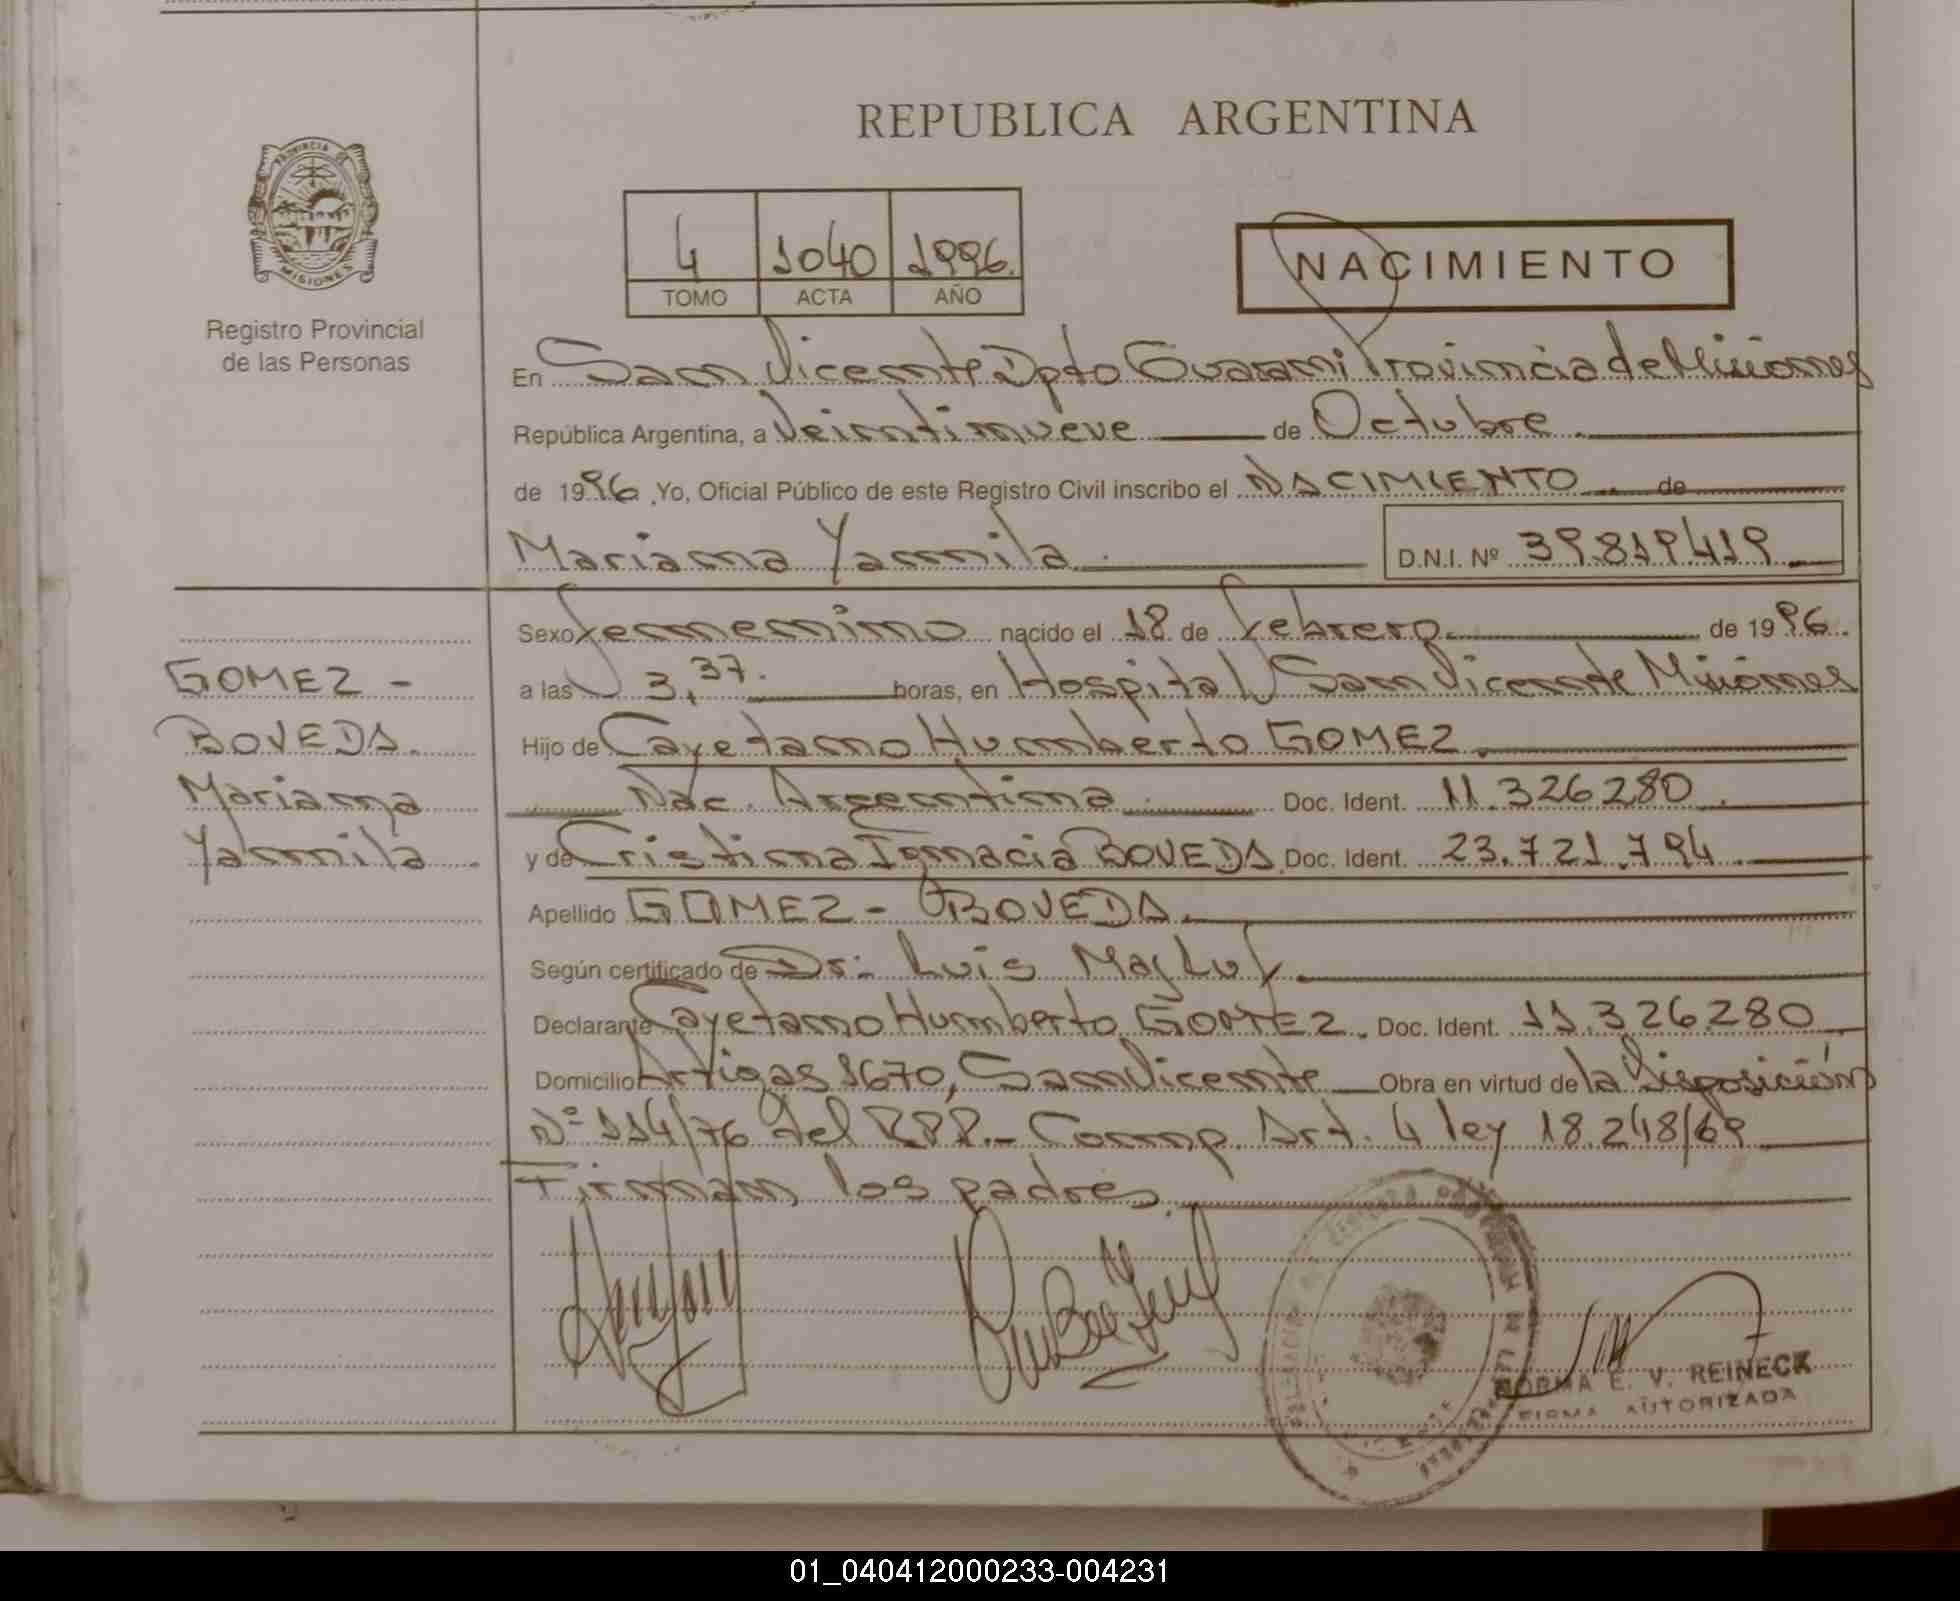 REPUBLICA ARGENTINA
PROVINCIA DE
MISIONES
Registro Provincial
de las Personas
4 1040 1996.
TOMO ACTA AÑO
NACIMIENTO
En San Vicente Dpto Guarani Provincia de Misiones
República Argentina, a Veintinueve de Octubre
de 1996 Yo, Oficial Público de este Registro Civil inscribo el NACIMIENTO de
Mariana Yamila. D.N.I. Nº 39.819.419
Sexo femenino nacido el 18 de febrero de 1996.
a las 3,37. horas, en Hospital San Vicente Misiones
Hijo de Cayetano Humberto GOMEZ.
Nac. Argentina. Doc. Ident. 11.326280.
y de Cristina Ignacia BOVEDA. Doc. Ident. 23.721.794.
Apellido GOMEZ - BOVEDA.
Según certificado de Dr: Luis Majluf.
Declarante Cayetano Humberto GOMEZ. Doc. Ident. 11.326280
Domicilio Artigas 1670, San Vicente Obra en virtud de la Disposición
Nº 114/76 del RPP.- Comp. Art. 4 ley 18.248/69
Firman los padres.
GOMEZ -
BOVEDA.
Mariana
Yamila.
NORMA E. V. REINECK
FIRMA AUTORIZADA
01_040412000233-004231